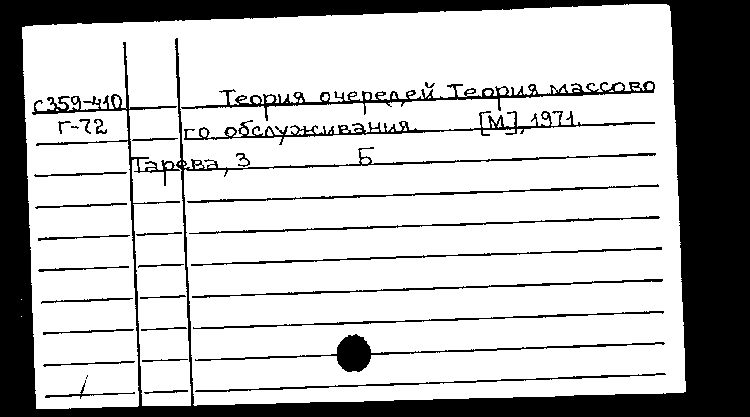 с359-410 Теория очередей. Теория массово
Г-72 го обслуживания. [М], 1971.
Тарева, З Б